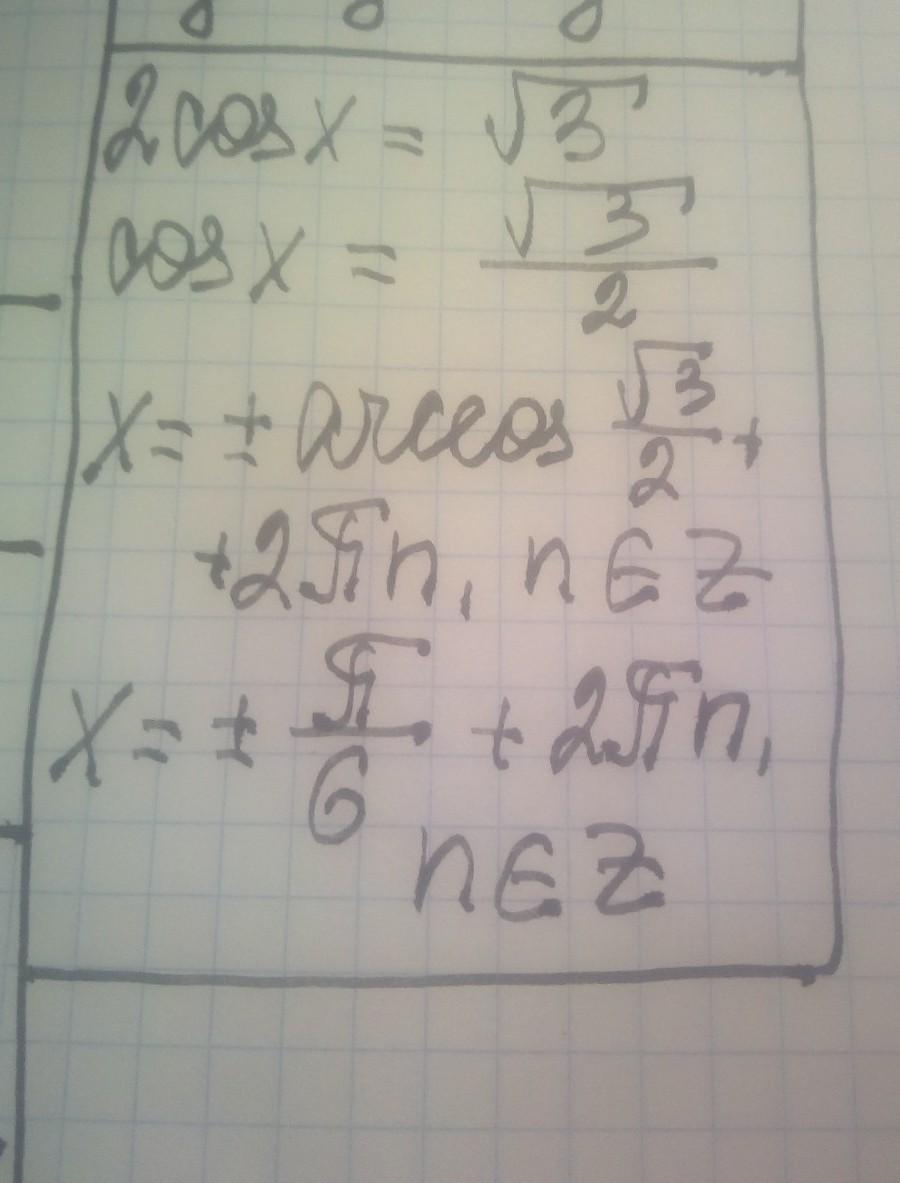 2cosx = √3
cosx = √3/2
x = ± arccos √3/2 +
+2πn, n∈Z
x = ± π/6 + 2πn,
n∈Z